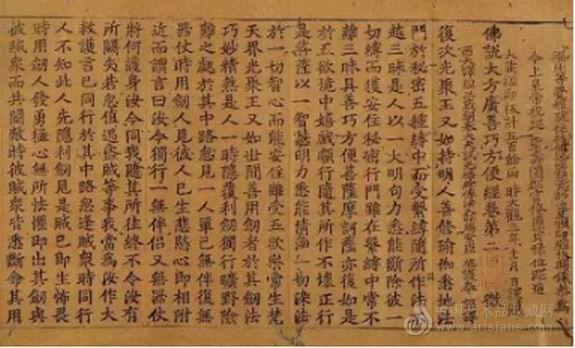 今上皇帝祝延
佛說大方廣善巧方便經卷第二 微
復次光聚王又如持明人善修瑜伽悉地法
門於秘密五種縛中而受繫縛隨所作法
越三昧是人以一大明句力悉能斷除彼一
切縛而獲安住秘密行門雖在繫縛中常不
離三昧具善巧方便菩薩摩訶薩亦復如是
於五欲境中嬉戲廣行隨其所作不壞正行
是菩薩以一智慧明力悉能清淨一切染法
於一切智心而能安住雖受五欲當生梵
天界光聚王又如世間善用劍者於其劍法
巧妙精熟是人一時隱覆利劍獨行曠野險
難之處於其中路忽見一人單己無伴復無
器仗時用劍人見彼人已生悲愍心即相附
近而謂言曰汝今獨行一無伴侶又無器仗
將何護身汝今同我隨其所往終不令汝有
所闕失若忽值遇盜賊等事我當為汝作大
救護言已同行於其中路忽逢賊眾時同行
人不知此人先隱利劍見是賊已即生怖畏
時用劍人發勇猛心無所怯懼即出其劍與
彼賊眾而共鬪敵時彼賊眾皆悉斷命其用
中国艺术品收藏网
www.artsfans.com